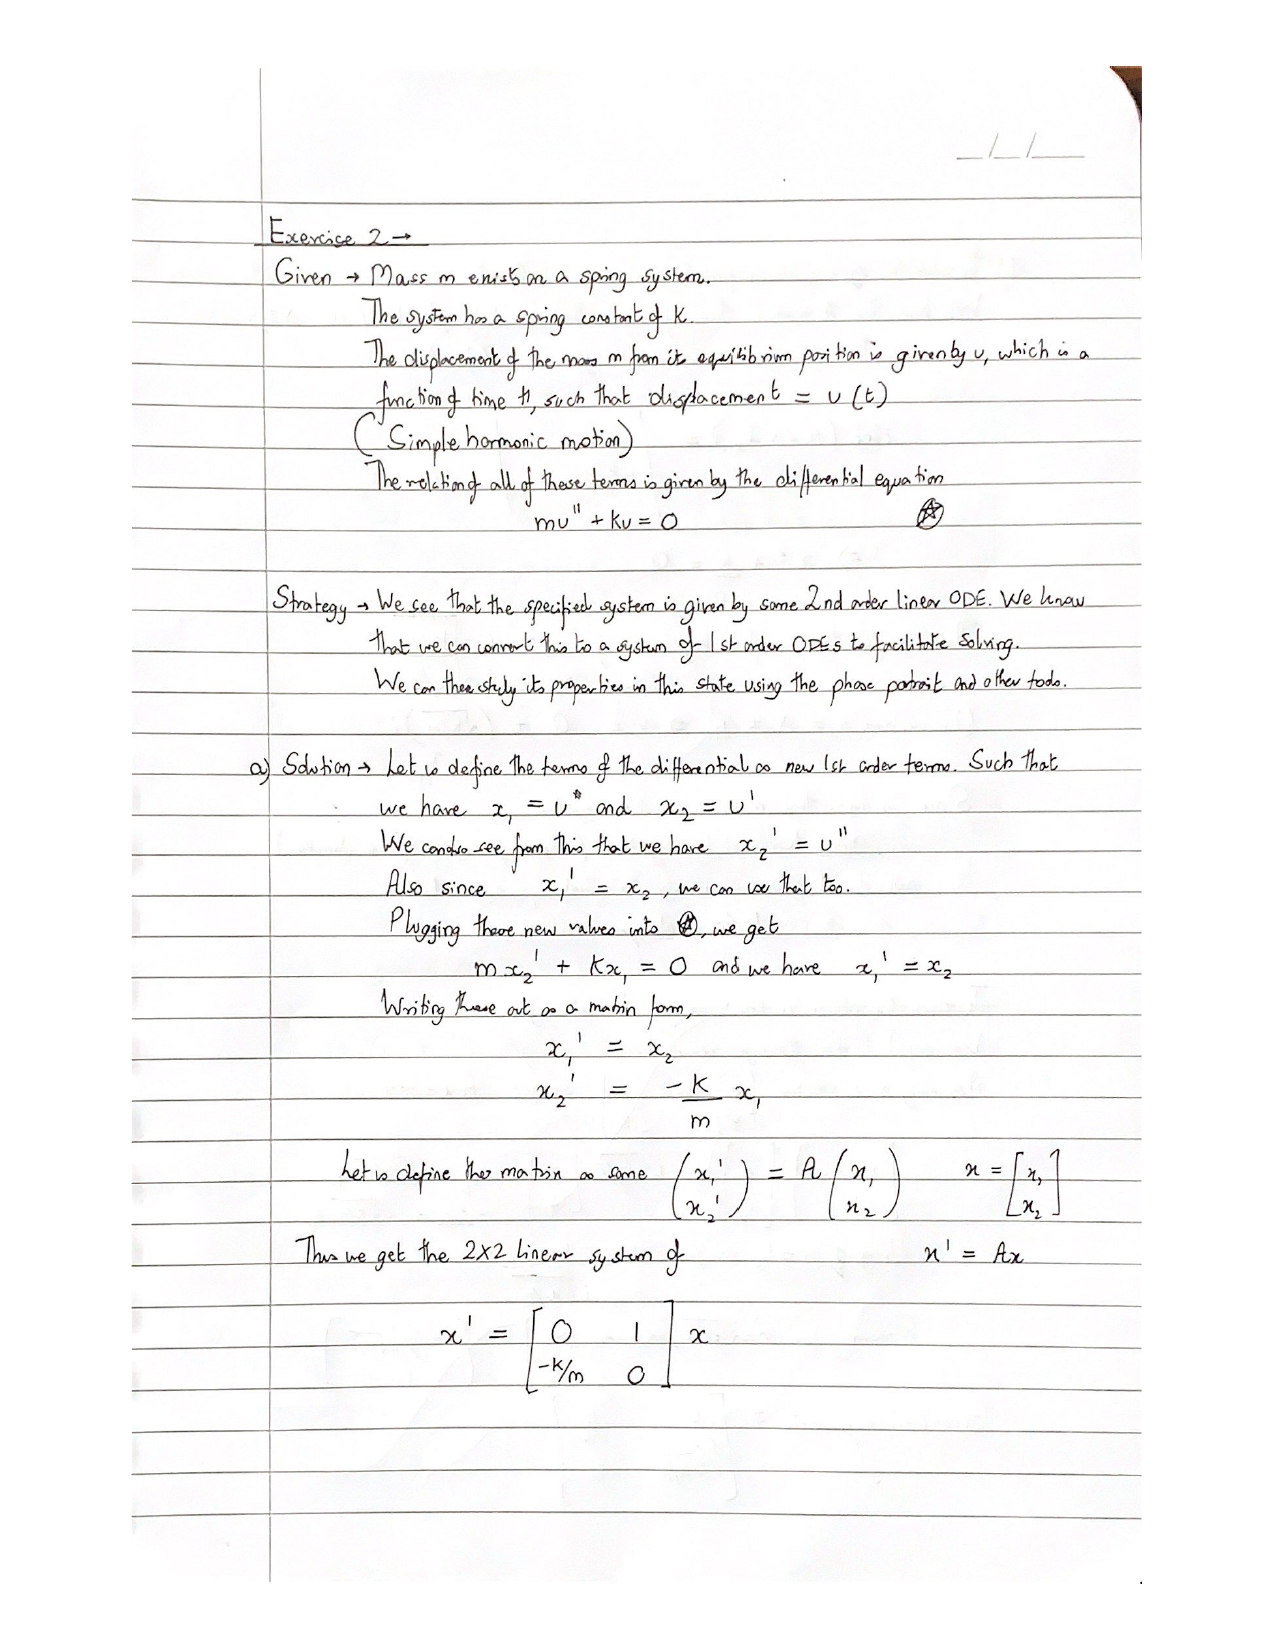 _/_/_
Exercice 2 →
Given → Mass m exists on a spring system.
The system has a spring constant of K.
The displacement of the mass m from it equilibrium position is given by u, which is a
function of time t, such that displacement = u(t)
(Simple harmonic motion)
The relation of all of these terms is given by the differential equation
mu" + ku = 0 ⍟
Strategy → We see that the specified system is given by some 2nd order linear ODE. We know
that we can convert this to a system of 1st order ODEs to facilitate solving.
We can then study its properties in this state using the phase portrait and other tools.
a) Solution → Let us define the terms of the differential as new 1st order terms. Such that
we have x₁ = u and x₂ = u'
We can also see from this that we have x₂' = u"
Also since x₁' = x₂, we can use that too.
Plugging these new values into ⍟, we get
mx₂' + Kx₁ = 0 and we have x₁' = x₂
Writing these out as a matrix form,
x₁' = x₂
x₂' = -K/m x₁
Let us define the matrix as some (x₁' x₂') = A (x₁ x₂) x = [x₁ x₂]
Thus we get the 2x2 linear system of x' = Ax
x' = [0 1
-K/m 0] x